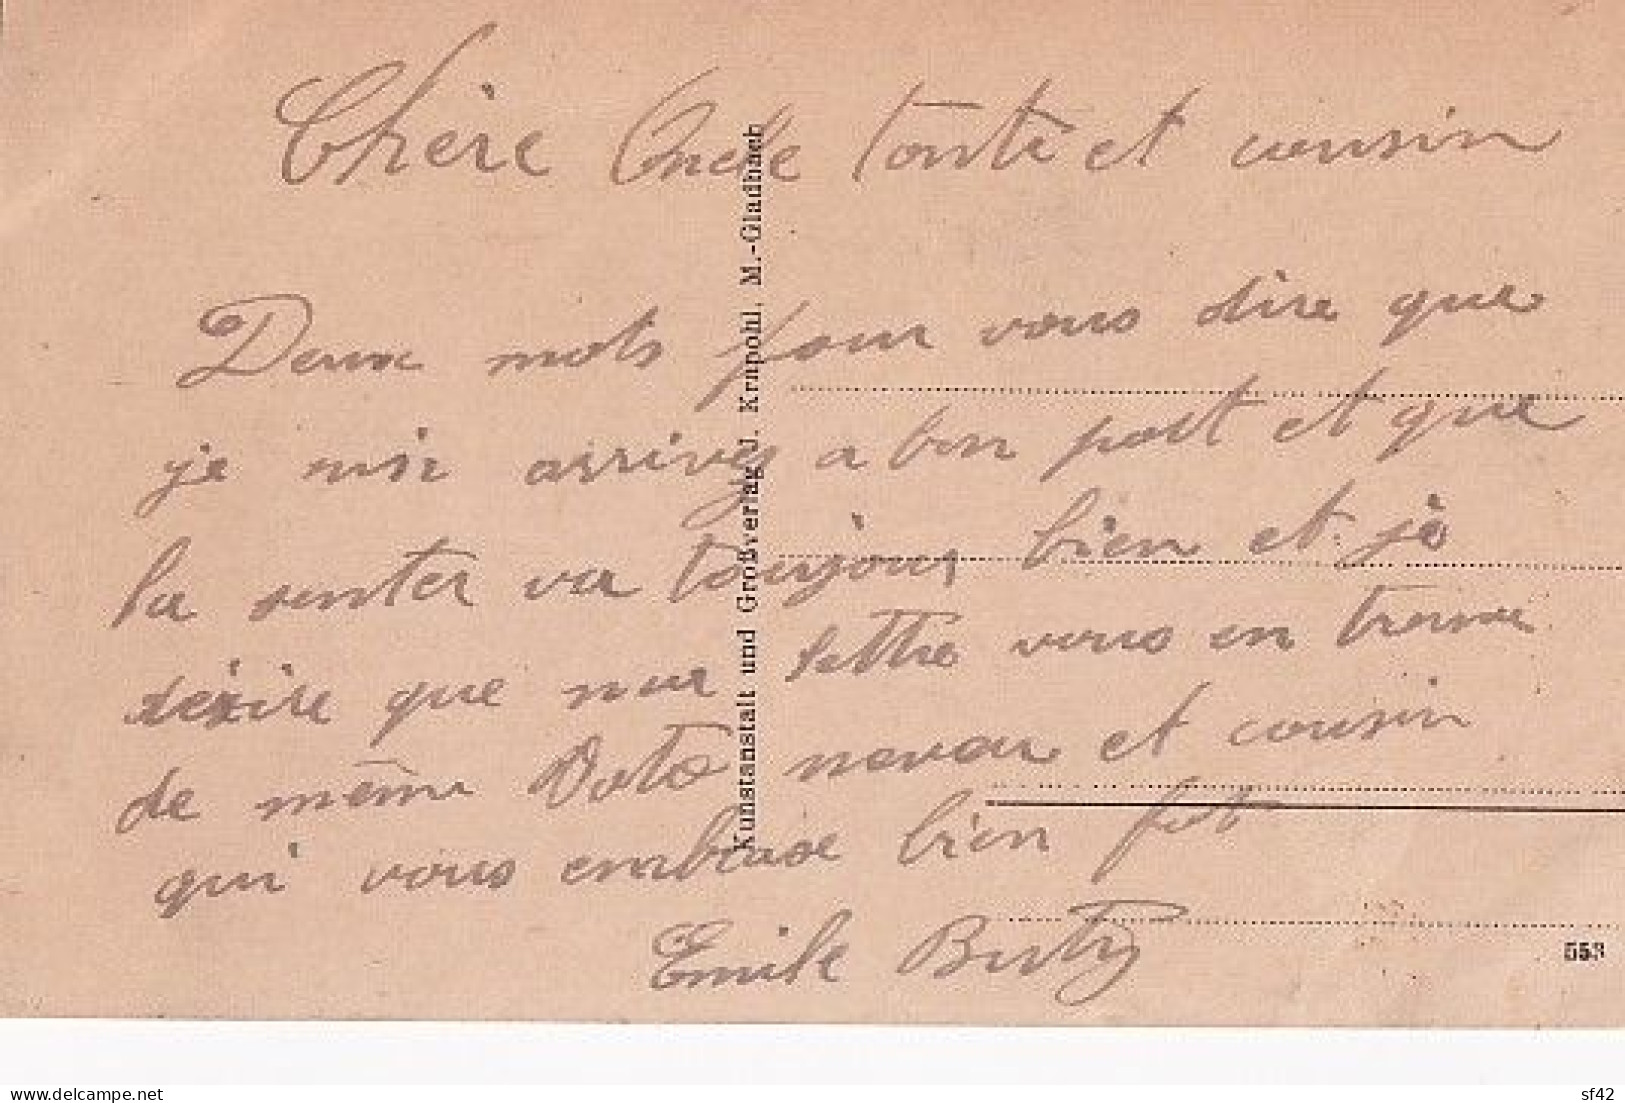 Chère Oncle tante et cousin
Deux mots pour vous dire que
je suis arrivez a bon port et que
la senter va toujours bien et je
désire que ma lettre vous en trouve
de même Votre neveu et cousin
qui vous embrase bien fort
Emile Butty
Kunstanstalt und Großverlag J. Krapohl, M.-Gladbach
553
sf42